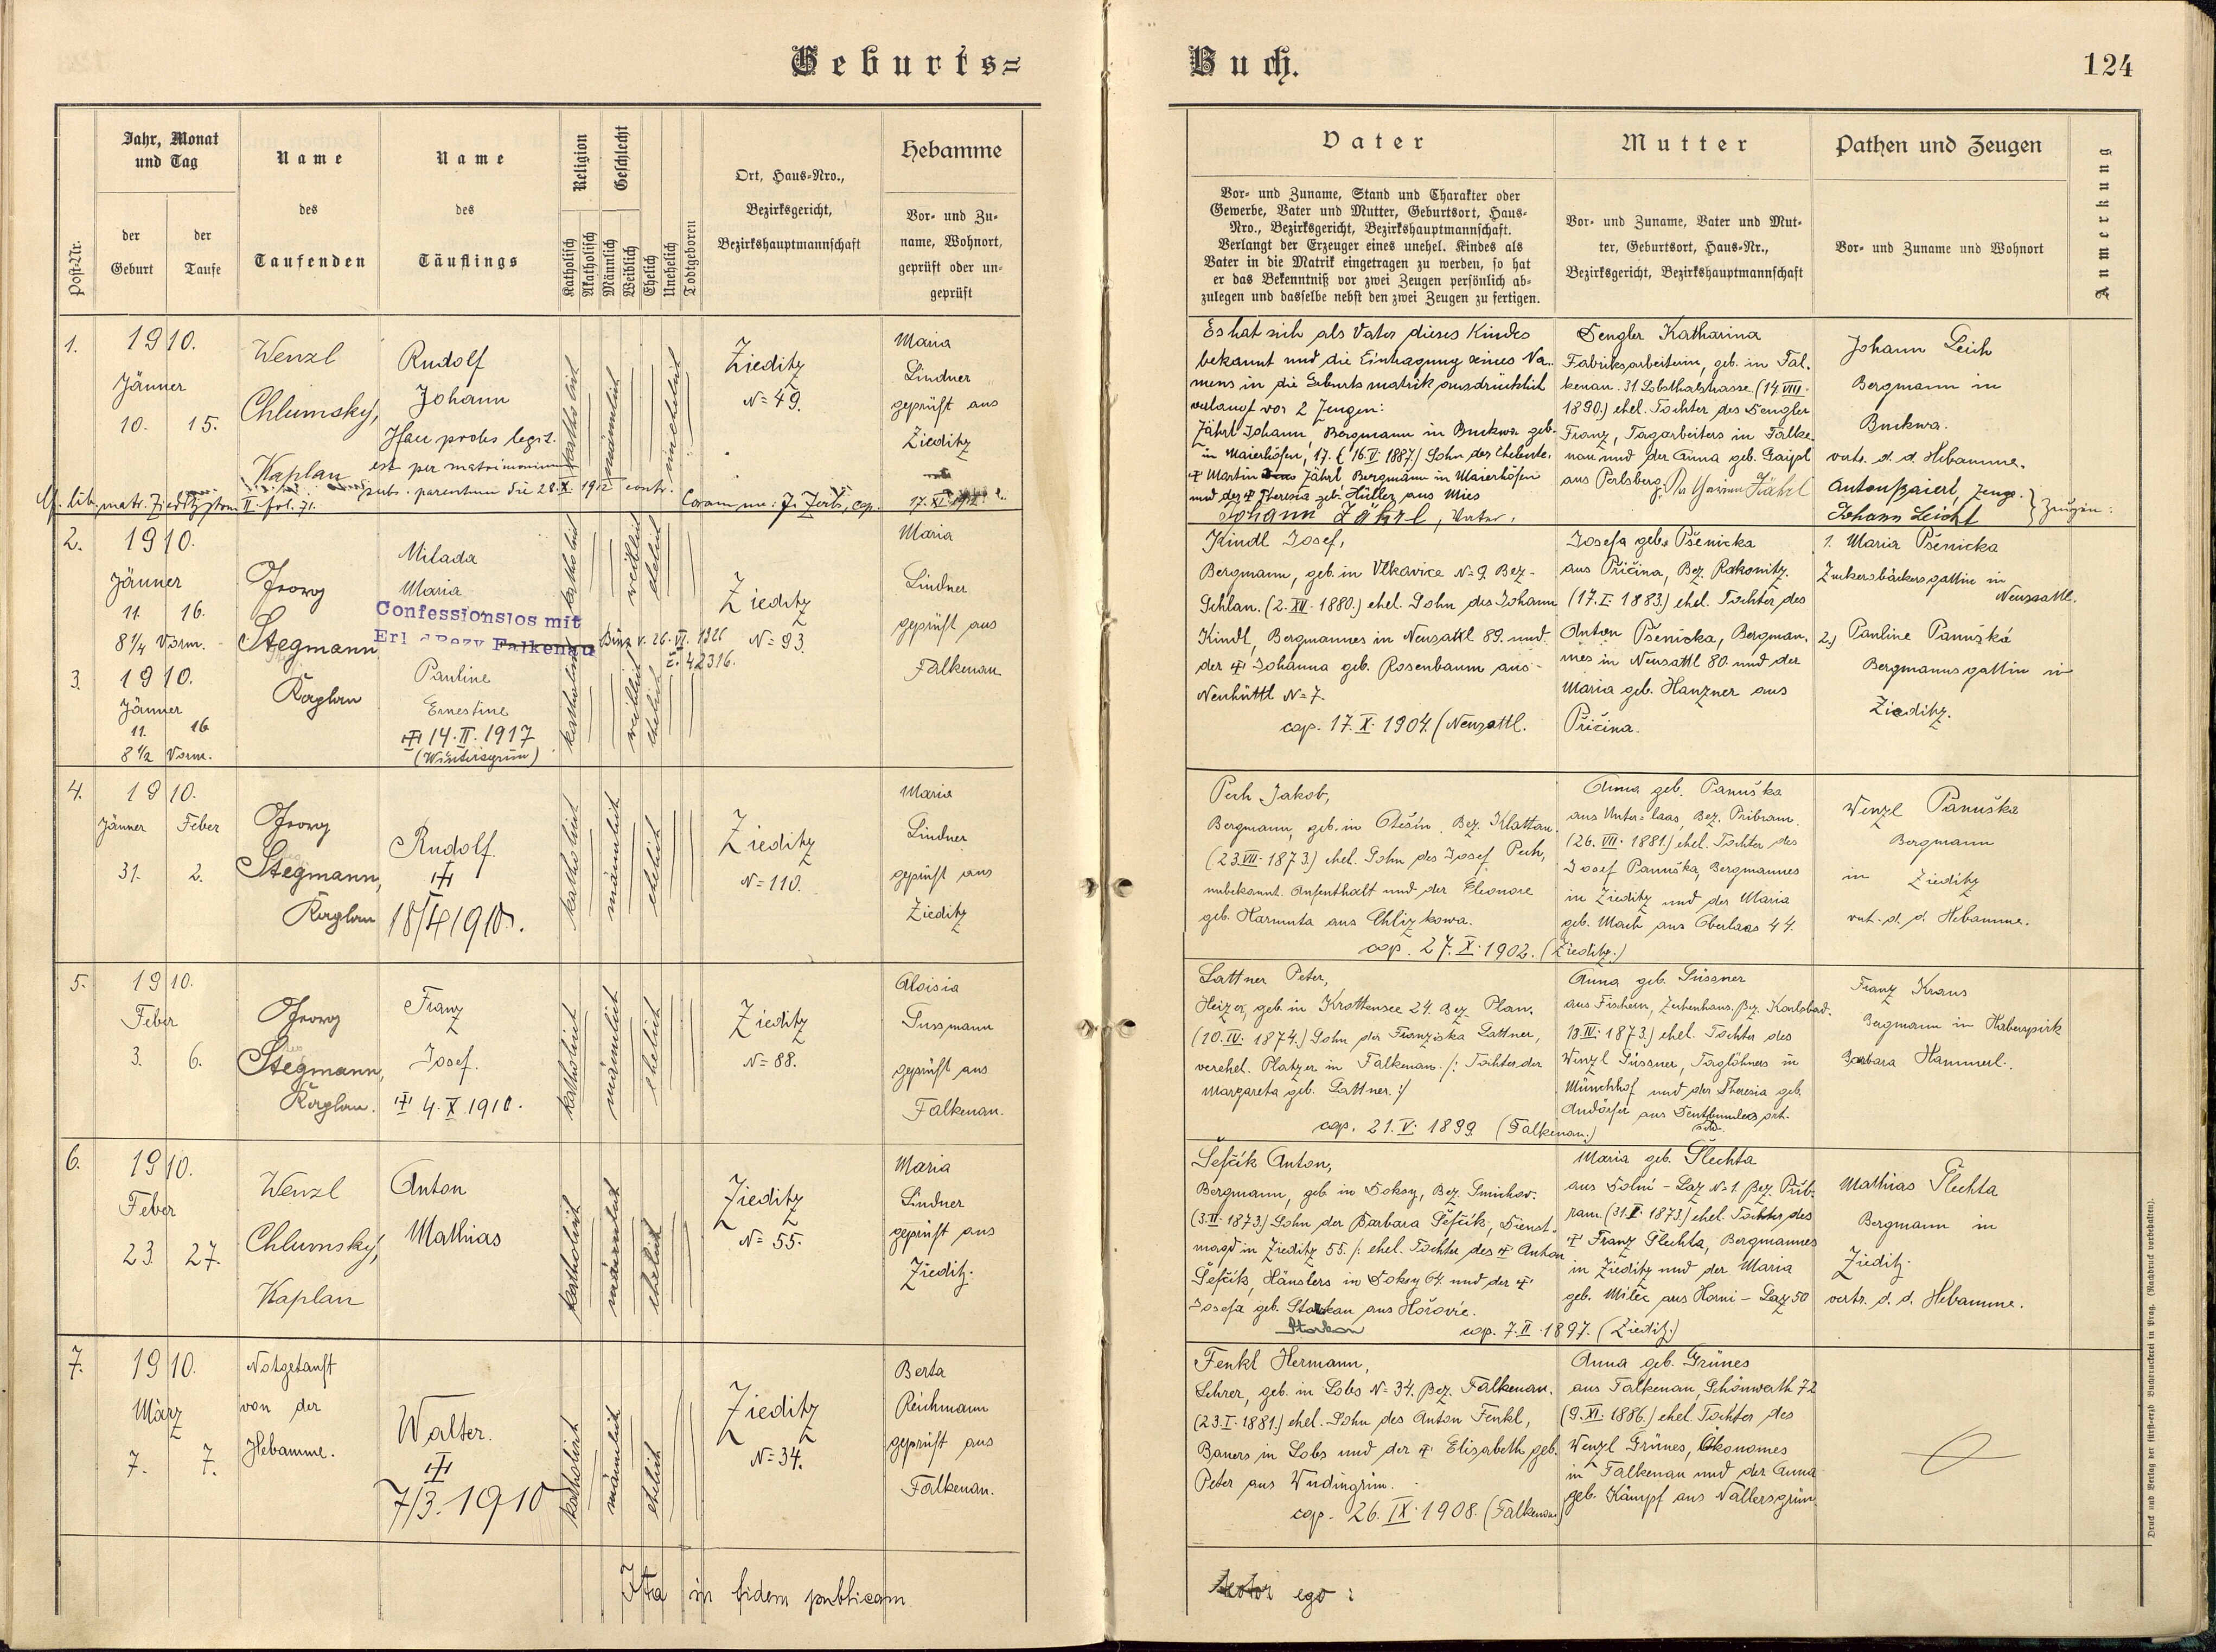 Geburts=
Buch.
124
Post-Nr.
Jahr, Monat
und Tag
der
Geburt
der
Taufe
Name
des
Taufenden
Name
des
Täuflings
Religion
Katholisch
Akatholisch
Geschlecht
Männlich
Weiblich
Ehelich
Unehelich
Todtgeboren
Ort, Haus-Nro.,
Bezirksgericht,
Bezirkshauptmannschaft
Hebamme
Vor- und Zu-
name, Wohnort,
geprüft oder un-
geprüft
Vater
Vor- und Zuname, Stand und Charakter oder
Gewerbe, Vater und Mutter, Geburtsort, Haus-
Nro., Bezirksgericht, Bezirkshauptmannschaft.
Verlangt der Erzeuger eines unehel. Kindes als
Vater in die Matrik eingetragen zu werden, so hat
er das Bekenntniß vor zwei Zeugen persönlich ab-
zulegen und dasselbe nebst den zwei Zeugen zu fertigen.
Mutter
Vor- und Zuname, Vater und Mut-
ter, Geburtsort, Haus-Nr.,
Bezirksgericht, Bezirkshauptmannschaft
Pathen und Zeugen
Vor- und Zuname und Wohnort
Anmerkung
1.
1910.
Jänner
10. 15.
Wenzl
Chlumsky,
Kaplan
Rudolf
Johann
Haec proles legit.
est per matrimonium
subs. parentum die 28.X 1912 contr.
Cf. lib. matr. Zieditz tom II. fol. 71.
Coram me: J. cap. 17. XI. 1912.
katholisch
männlich
unehelich
Zieditz
N= 49.
Maria
Lindner
geprüft aus
Zieditz
Es hat sich als Vater dieses Kindes
bekannt und die Eintragung seines Na-
mens in die Geburtsmatrik ausdrücklich
verlangt vor 2 Zeugen:
Jährl Johann, Bergmann in Buckwa geb.
in Maierhöfen, 17. (16.V. 1887.) Sohn der Eheleute.
Martin Jährl Bergmann in Maierhöfen
und der Theresia geb. Hüller aus Mies
Johann Jährl, Vater.
Dengler Katharina
Fabriksarbeiterin, geb. in Fal-
kenau. 31. Lobsthalstrasse. (14. VIII.
1890.) ehel. Tochter des Dengler
Franz, Tagarbeiters in Falke-
nau und der Anna geb. Gaipl
aus Perlsberg.
Johann Leich
Bergmann in
Buckwa.
vertr. d. d. Hebamme.
Anton Baierl, Zeuge.
Johann Leicht
Zeugen.
2.
1910.
Jänner
11. 16.
8 1/4 Vorm.
Georg
Stegmann
Kaplan
Milada
Maria
Confessionslos mit
Erl d Bezv Falkenau
v. 26. VI. 1926
Z. 42316.
katholisch
weiblich
ehelich
Zieditz
N= 93.
Maria
Lindner
geprüft aus
Falkenau
Kindl Josef,
Bergmann, geb. in Vlkavice N= 9. Bez.
Schlan. (2. XII. 1880.) ehel. Sohn des Johann
Kindl, Bergmannes in Neusattl 89. und
der Johanna geb. Rosenbaum aus
Neuhüttl N= 7.
cop. 17. X. 1904. (Neusattl.
Josefa geb. Pšenicka
aus Přičina, Bez. Rakonitz.
(17. I. 1883.) ehel. Tochter des
Anton Pšenicka, Bergman-
nes in Neusattl 80. und der
Maria geb. Hanzner aus
Přičina.
1. Maria Pšenicka
Zuckerbäckersgattin in
Neusattl.
2.) Pauline Panuška
Bergmannsgattin in
Zieditz.
3.
1910.
Jänner
11. 16
8 1/2 Vorm.
Pauline
Ernestine
14. II. 1917
(Wintersgrün)
katholisch
weiblich
ehelich
4.
1910.
Jänner Feber
31. 2.
Georg
Stegmann,
Kaplan
Rudolf
18/4 1910.
katholisch
männlich
ehelich
Zieditz
N= 110.
Maria
Lindner
geprüft aus
Zieditz
Pech Jakob,
Bergmann, geb. in Otěšín, Bez. Klattau.
(23. VII. 1873.) ehel. Sohn des Josef Pech,
unbekannt. Aufenthalt und der Eleonore
geb. Harmuta aus Chlizkowa.
cop. 27. X. 1902. (Zieditz.)
Anna geb. Panuška
aus Unter-laas, Bez. Pribram.
(26. VIII. 1881.) ehel. Tochter des
Josef Panuška, Bergmannes
in Zieditz und der Maria
geb. Mach aus Oberlaas 44.
Wenzl Panuška
Bergmann
in Zieditz
vert. d. d. Hebamme.
5.
1910.
Feber
3. 6.
Georg
Stegmann,
Kaplan.
Franz
Josef.
4. X. 1910.
katholisch
männlich
ehelich
Zieditz
N= 88.
Aloisia
Sussmann
geprüft aus
Falkenau.
Lattner Peter,
Heizer, geb. in Krottensee 24. Bez. Plan.
(10. IV. 1874.) Sohn der Franziska Lattner,
verehel. Platzer in Falkenau. /: Tochter der
Margareta geb. Lattner. :/
cop. 21. V. 1899. (Falkenau.)
Anna geb. Süssner
aus Fischern, Zechenhaus, Bez. Karlsbad.
ehel. Tochter des
Wenzl Süssner, Taglöhners in
Münchhof und der Theresia geb.
Franz Kraus
Bergmann in Haberspirk
Barbara Hammerl.
6.
1910.
Feber
23. 27.
Wenzl
Chlumsky,
Kaplan
Anton
Mathias
katholisch
männlich
ehelich
Zieditz
N= 55.
Maria
Lindner
geprüft aus
Zieditz.
Šefčík Anton,
Bergmann, geb. in Doksy, Bez. Smichov.
(3. II. 1873.) Sohn der Barbara Šefčík, Dienst-
magd in Zieditz 55. /: ehel. Tochter des Anton
Šefčík, Häuslers in Doksy 64. und der
Josefa geb. Storkan aus Hořovic.
Storkan
cop. 7. II. 1897. (Zieditz.)
Maria geb. Šlechta
aus Dolní-Laz N= 1. Bez. Přib-
ram. 1873.) ehel. Tochter des
Franz Šlechta, Bergmannes
in Zieditz und der Maria
geb. Milec aus Horni-Laz 50
Mathias Šlechta
Bergmann in
Zieditz.
vertr. d. d. Hebamme.
7.
1910.
März
7. 7.
Notgetauft
von der
Hebamme.
Walter.
7/3. 1910
katholisch
männlich
ehelich
Zieditz
N= 34.
Berta
Reichmann
geprüft aus
Falkenau.
Fenkl Hermann,
Lehrer, geb. in Lobs N= 34. Bez. Falkenau.
(23. I. 1881.) ehel. Sohn des Anton Fenkl,
Bauers in Lobs und der Elisabeth geb.
Peter aus Wudingrün.
cop. 26. IX. 1908. (Falkenau.)
Anna geb. Grünes
aus Falkenau, Schönwerth 72
(9. XI. 1886.) ehel. Tochter des
Wenzl Grünes, Ökonomes
in Falkenau und der Anna
geb. Kämpf aus Wallersgrün
Ita in fidem publicam
ego:
Druck und Verlag der fürst-erzb Buchdruckerei in Prag. (Nachdruck vorbehalten).